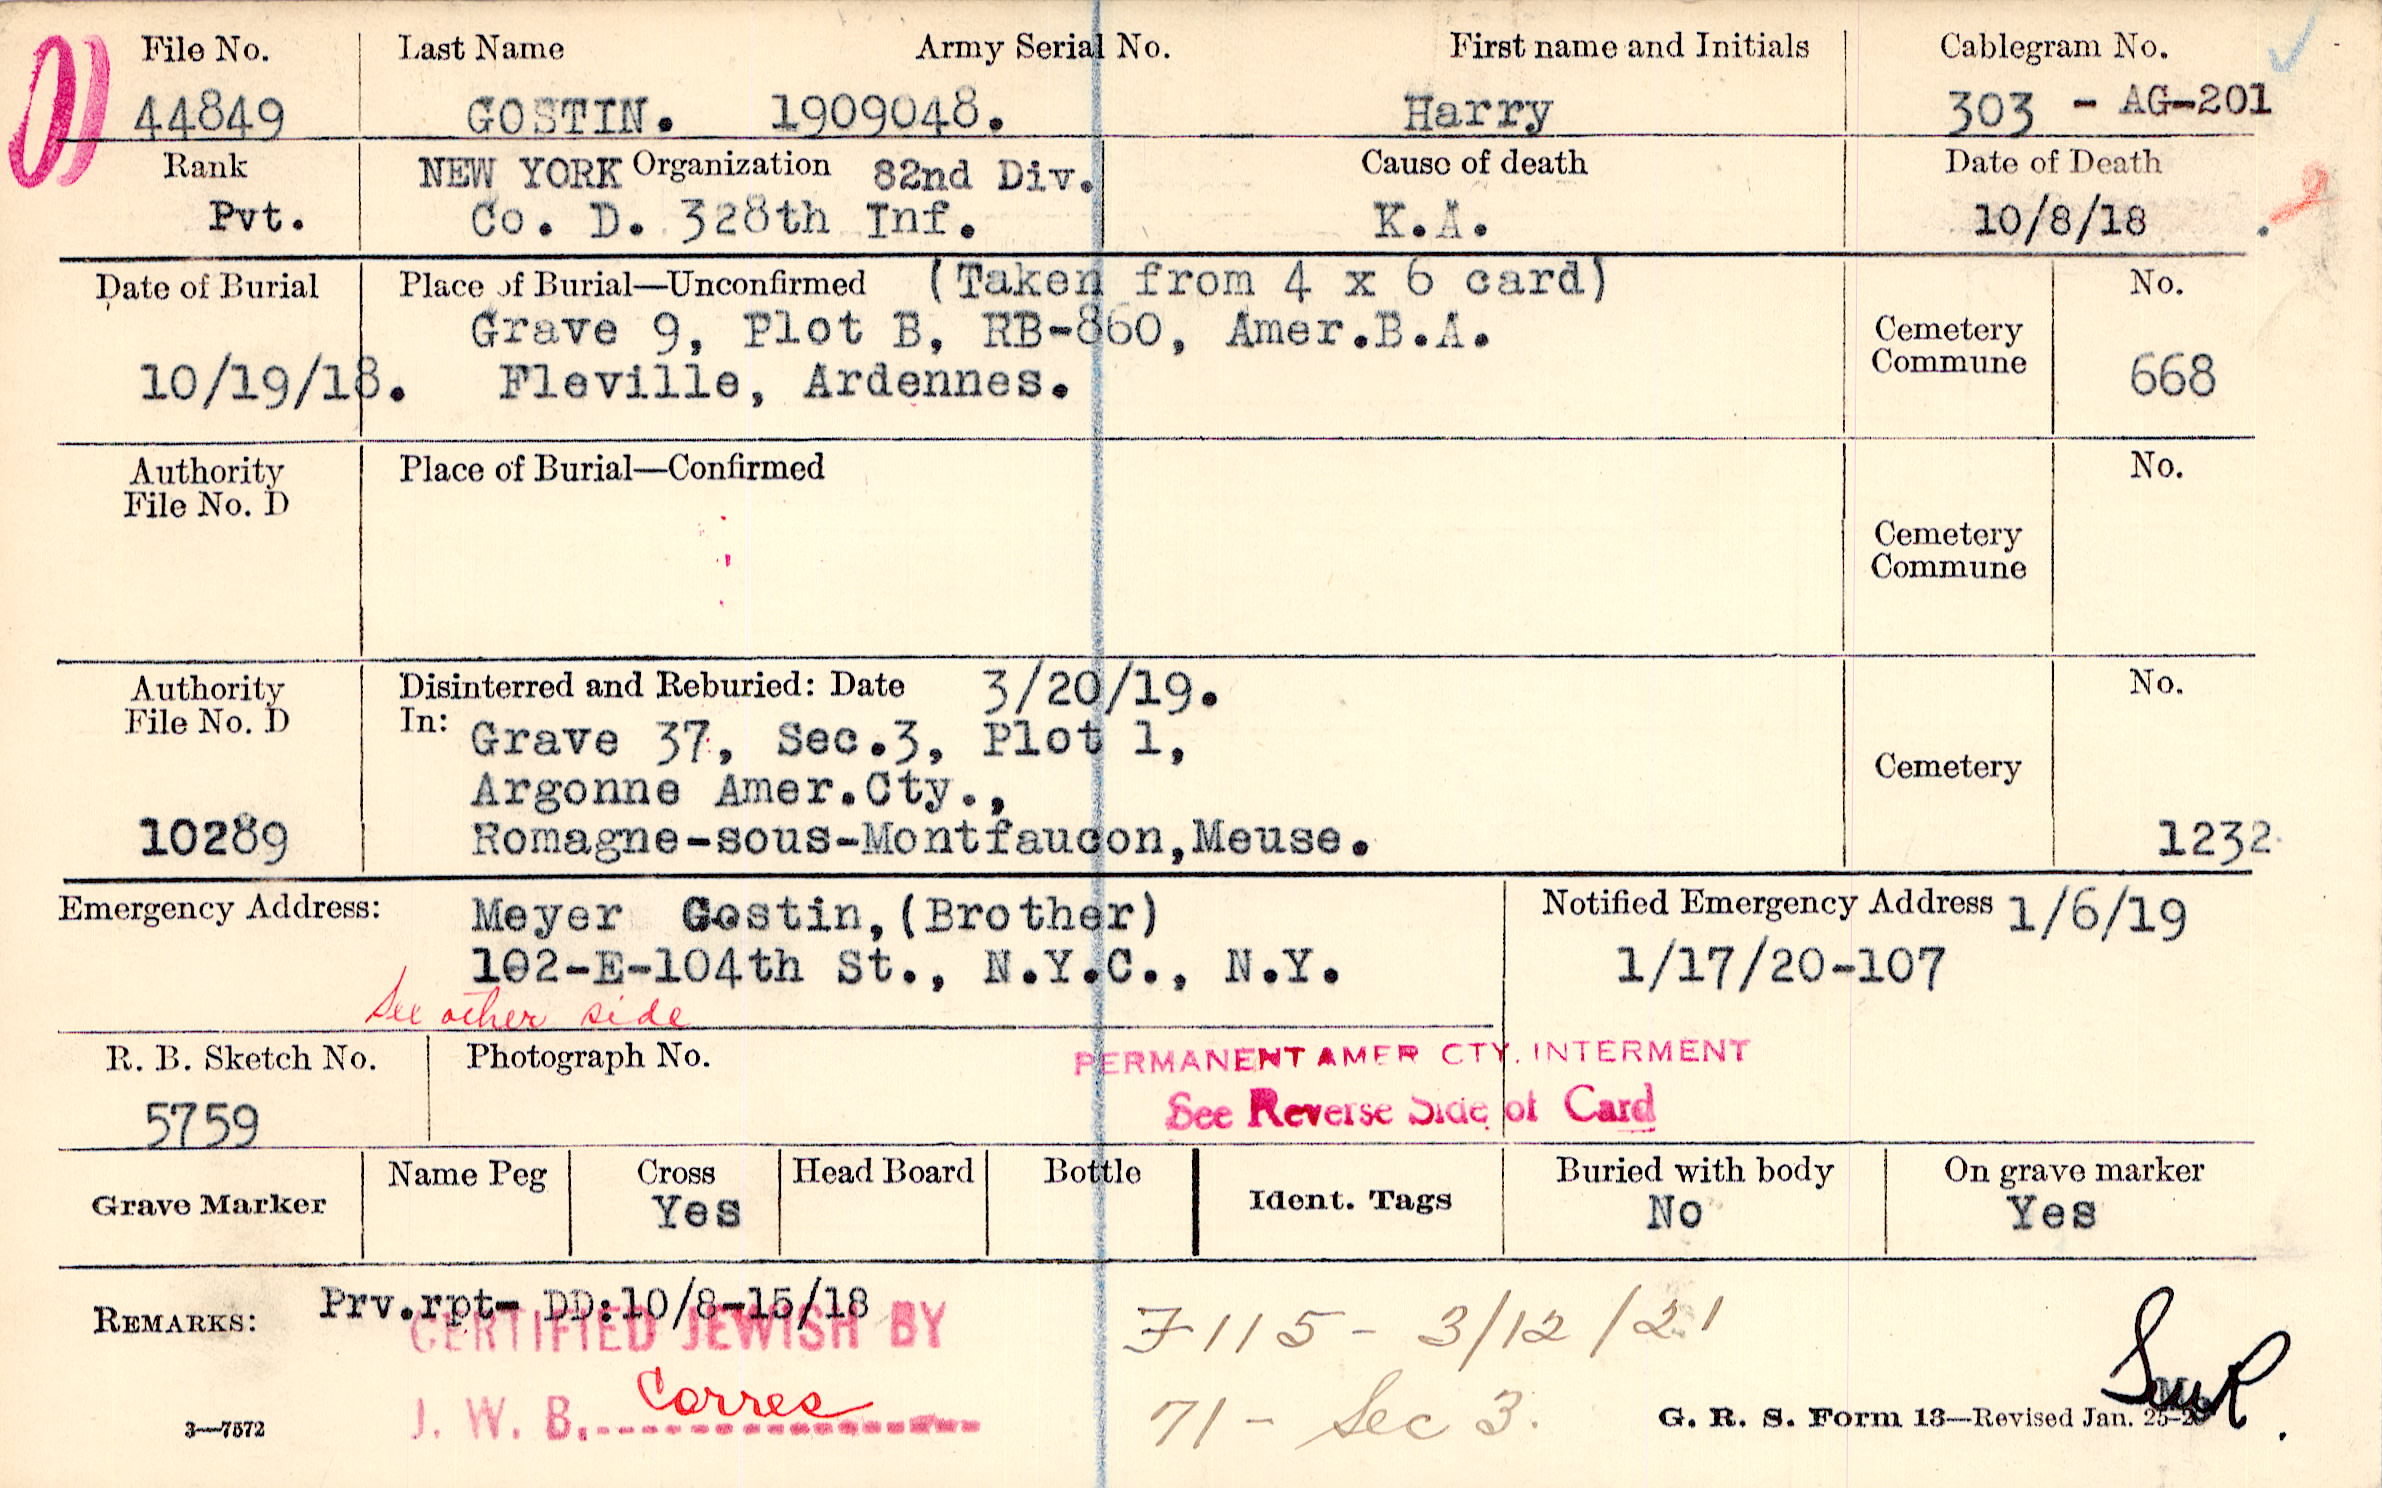 File No. Last Name Army Serial No. First name and Initials Cablegram No.
44849 GOSTIN. 1909048. Harry 303 - AG-201
Rank NEW YORK Organization 82nd Div. Cause of death Date of Death
Pvt. Co. D. 328th Inf. K.A. 10/8/18
Date of Burial Place of Burial—Unconfirmed (Taken from 4 x 6 card) No.
Grave 9, Plot B, RB-860, Amer.B.A. Cemetery
Commune
10/19/18. Fleville, Ardennes. 668
Authority Place of Burial—Confirmed No.
File No. D
Cemetery
Commune
Authority Disinterred and Reburied: Date 3/20/19. No.
File No. D In: Grave 37, Sec.3, Plot 1,
Argonne Amer.Cty., Cemetery
10289 Romagne-sous-Montfaucon,Meuse. 1232
Emergency Address: Meyer Gostin,(Brother) Notified Emergency Address 1/6/19
102-E-104th St., N.Y.C., N.Y. 1/17/20-107
See other side
R. B. Sketch No. Photograph No. PERMANENT AMER CTY. INTERMENT
5759 See Reverse Side of Card
Grave Marker Name Peg Cross Head Board Bottle Ident. Tags Buried with body On grave marker
Yes No Yes
REMARKS: Prv.rpt- DD:10/8-15/18
CERTIFIED JEWISH BY F115- 3/12/21
J. W. B. Corres 71- Sec 3.
3—7572 G. R. S. Form 13—Revised Jan. 25-2